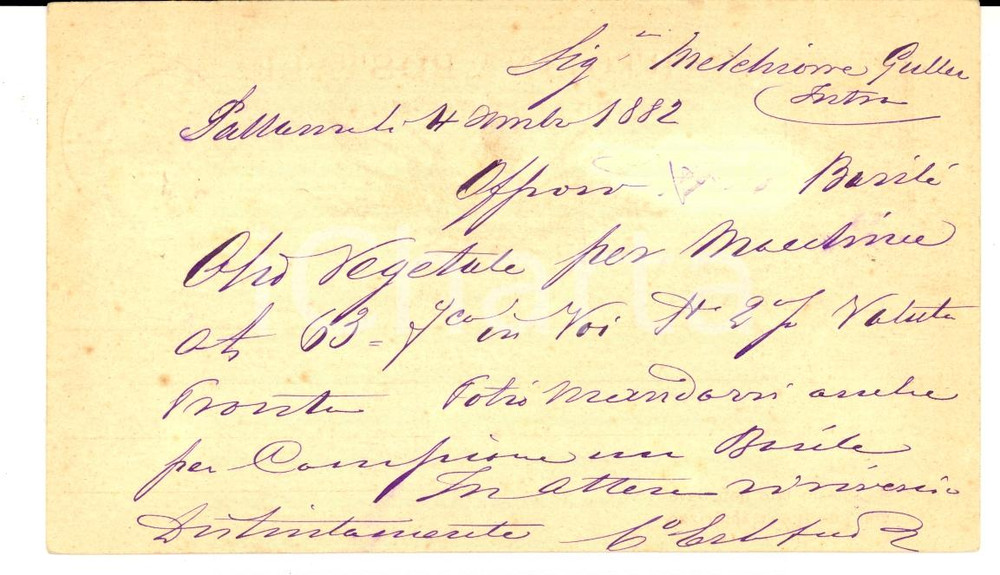 Sig.r Melchiorre Guller
Intra
Pallanza li 4 1882
Offro Barili
Olio Vegetale per Macchine
a 63 = in Voi 2% Valuta
Pronta Potrò Mandarvi anche
per Campione un Barile
In Attesa vi riverisco
Distintamente
Charta